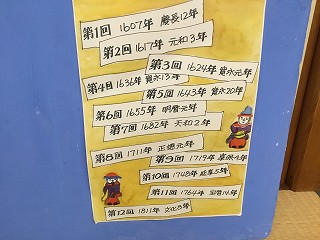 第1回 1607年 慶長12年
第2回 1617年 元和3年
第3回 1624年 寛永元年
第4回 1636年 寛永13年
第5回 1643年 寛永20年
第6回 1655年 明暦元年
第7回 1682年 天和2年
第8回 1711年 正徳元年
第9回 1719年 享保4年
第10回 1748年 延享5年
第11回 1764年 宝暦14年
第12回 1811年 文化8年